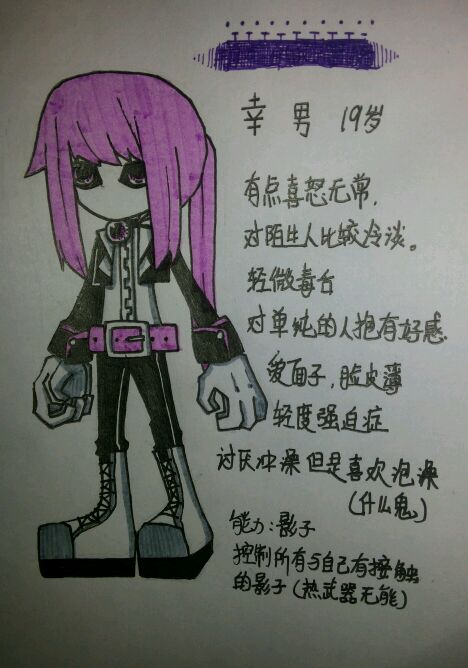 幸 男 19岁
有点喜怒无常，
对陌生人比较冷谈。
轻微毒舌
对单纯的人抱有好感.
爱面子，脸皮薄
轻度强迫症
讨厌冲澡但是喜欢泡澡
(什么鬼)
能力：影子
控制所有与自己有接触
的影子(热武器无能)